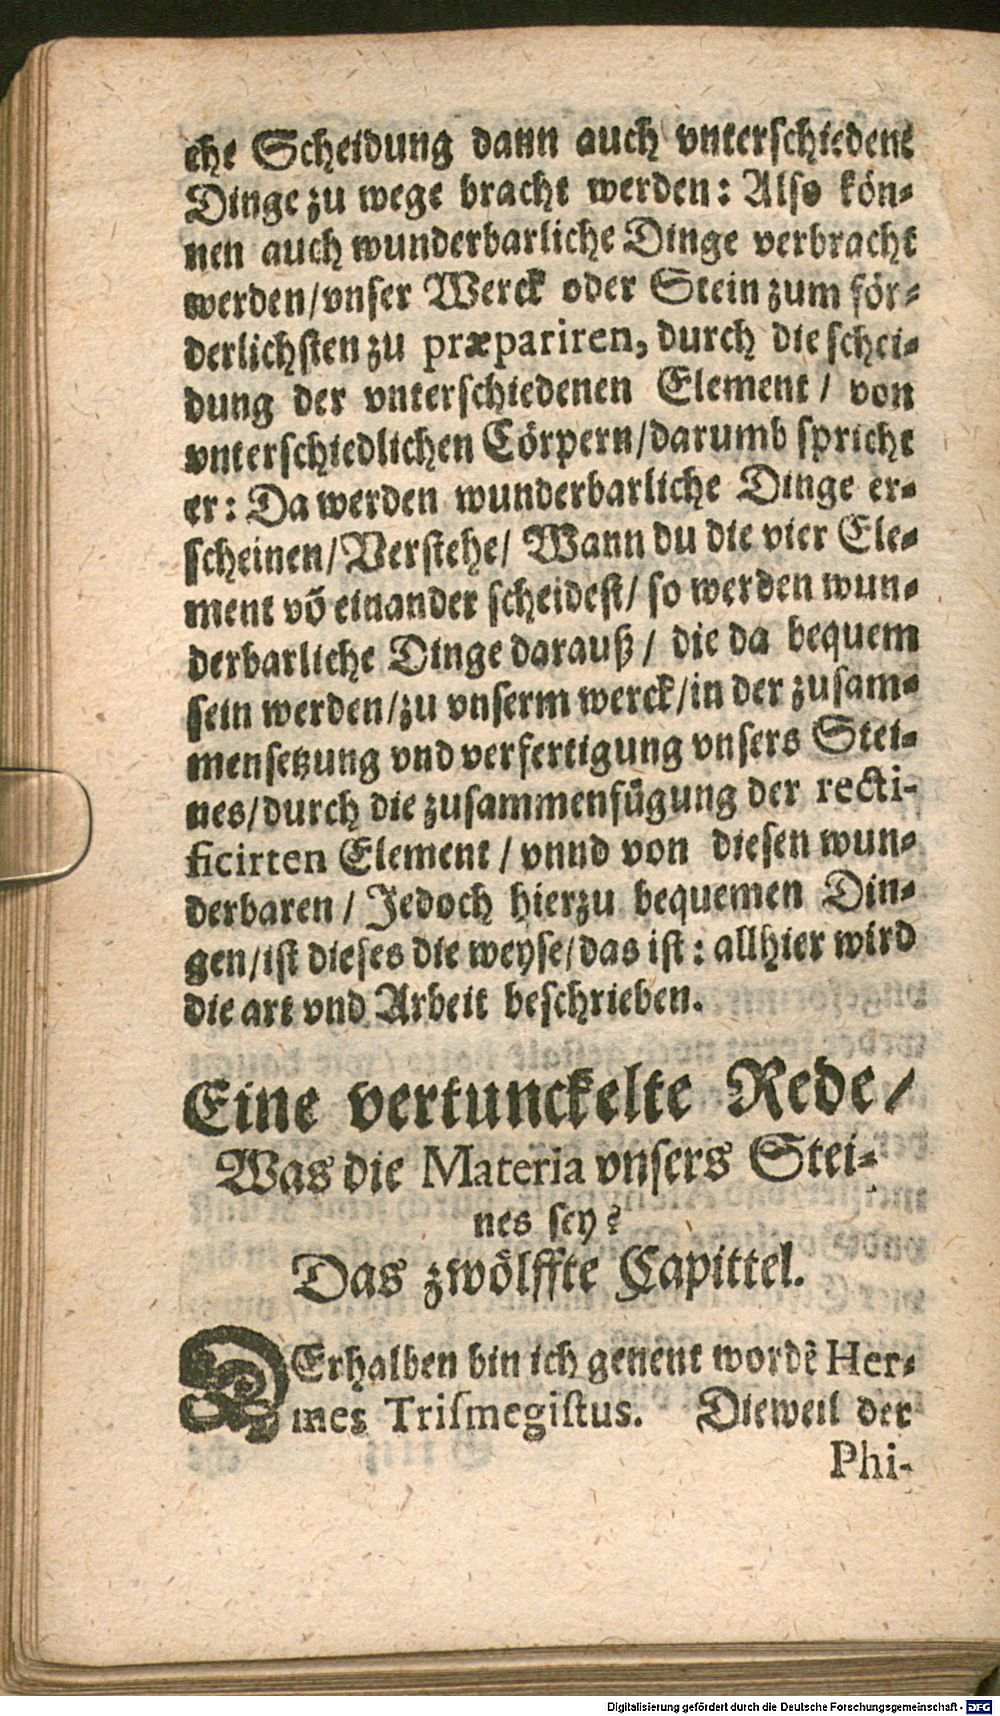 che Scheidung dann auch vnterschiedene
Dinge zu wege bracht werden: Also kön-
nen auch wunderbarliche Dinge verbracht
werden/vnser Werck oder Stein zum för-
derlichsten zu præpariren, durch die schei-
dung der vnterschiedenen Element / von
vnterschiedlichen Cörpern/darumb spricht
er: Da werden wunderbarliche Dinge er-
scheinen/Verstehe/ Wann du die vier Ele-
ment võ einander scheidest/ so werden wun-
derbarliche Dinge darauß / die da bequem
sein werden/zu vnserm werck/in der zusam-
mensetzung vnd verfertigung vnsers Stei-
nes/durch die zusammenfügung der recti-
ficirten Element / vnnd von diesen wun-
derbaren / Jedoch hierzu bequemen Din-
gen/ist dieses die weyse/das ist: allhier wird
die art vnd Arbeit beschrieben.
Eine vertunckelte Rede/
Was die Materia vnsers Stei-
nes sey?
Das zwölffte Capittel.
DErhalben bin ich genent wordẽ Her-
mes Trismegistus. Dieweil der
Phi-
Digitalisierung gefördert durch die Deutsche Forschungsgemeinschaft - DFG